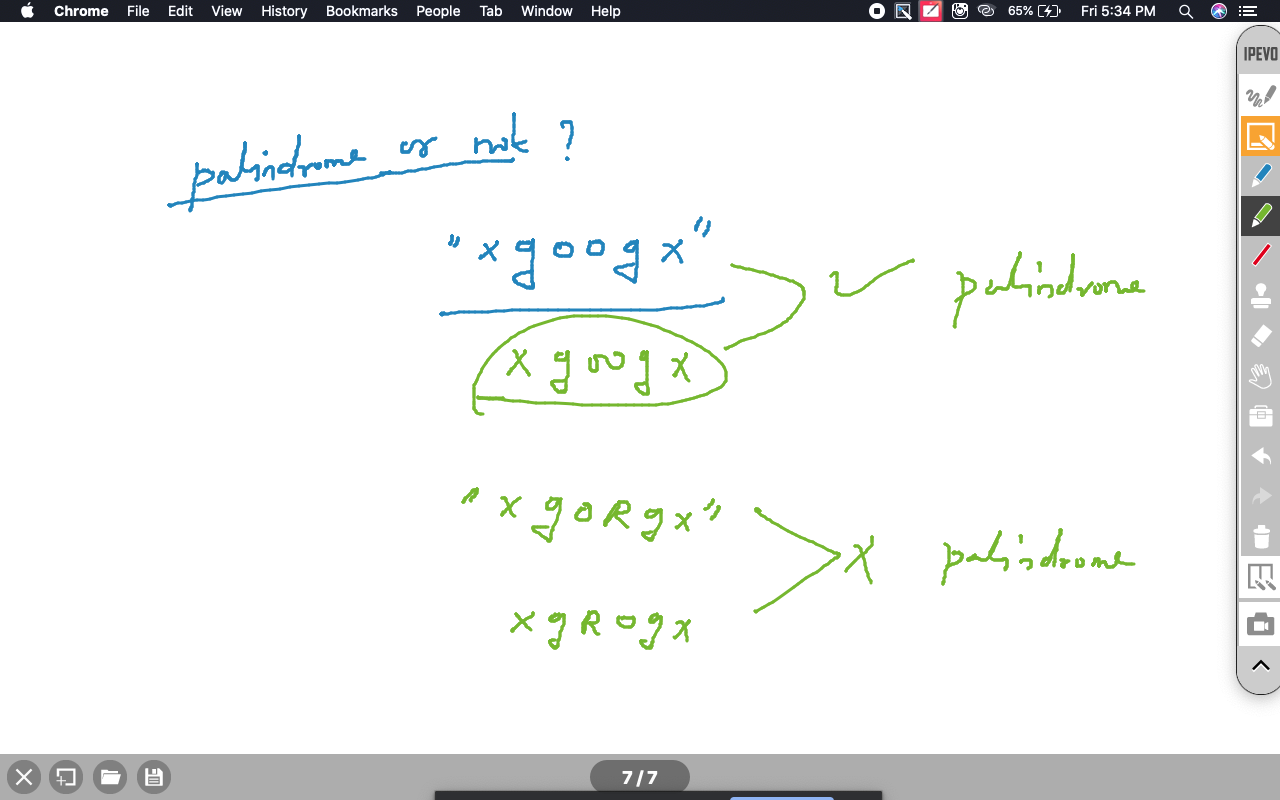 Chrome File Edit View History Bookmarks People Tab Window Help 65% Fri 5:34 PM
IPEVO
palindrome or not ?
"xgoogx"
palindrome
xgoogx
"xgoRgx"
X palindrome
xgRogx
7/7